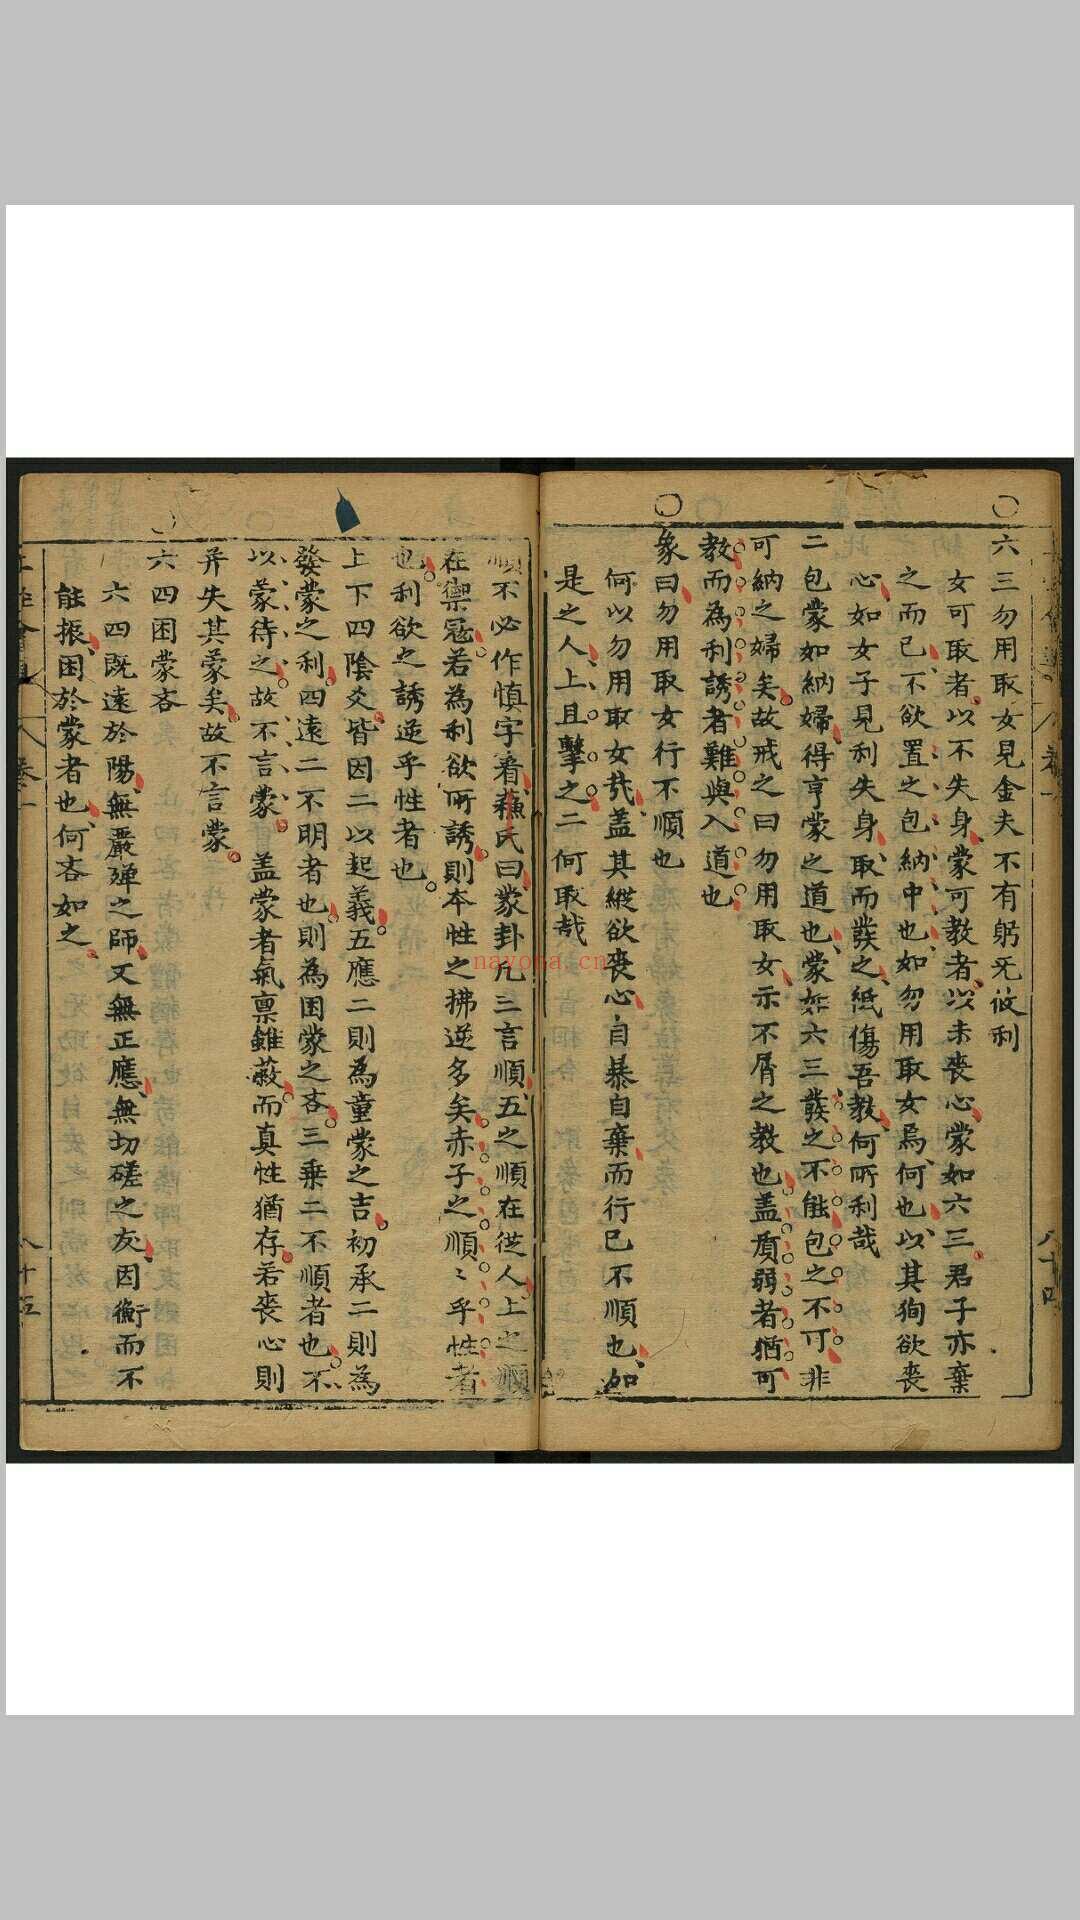 六三勿用取女見金夫不有躬旡攸利
女可取者以不失身蒙可教者以未喪心蒙如六三君子亦棄
之而已不欲置之包納中也如勿用取女焉何也以其狥欲喪
心如女子見利失身取而發之祗傷吾教何所利哉
二包蒙如納婦得亨蒙之道也蒙如六三發之不能包之不可非
可納之婦矣故戒之曰勿用取女示不屑之教也盖質弱者猶可
教而為利誘者難與入道也
象曰勿用取女行不順也
何以勿用取女㢤盖其縱欲喪心自暴自棄而行巳不順也如
是之人上且擊之二何取哉
順不必作慎字看蘓氏曰蒙卦凡三言順五之順在從人上之順
在禦寇若為利欲所誘則本性之拂逆多矣赤子之順〻乎性者
也利欲之誘逆乎性者也
上下四陰爻皆因二以起義五應二則為童蒙之吉初承二則為
發蒙之利四遠二不明者也則為困蒙之吝三乗二不順者也不
以蒙待之故不言蒙盖蒙者氣禀雖蔽而真性猶存若喪心則
并失其蒙矣故不言蒙
六四困蒙吝
六四既遠於陽無嚴殫之師又無正應無切磋之友因衡而不
能振困於蒙者也何吝如之
卷一
八十四
卷一
八十五
nayona.cn